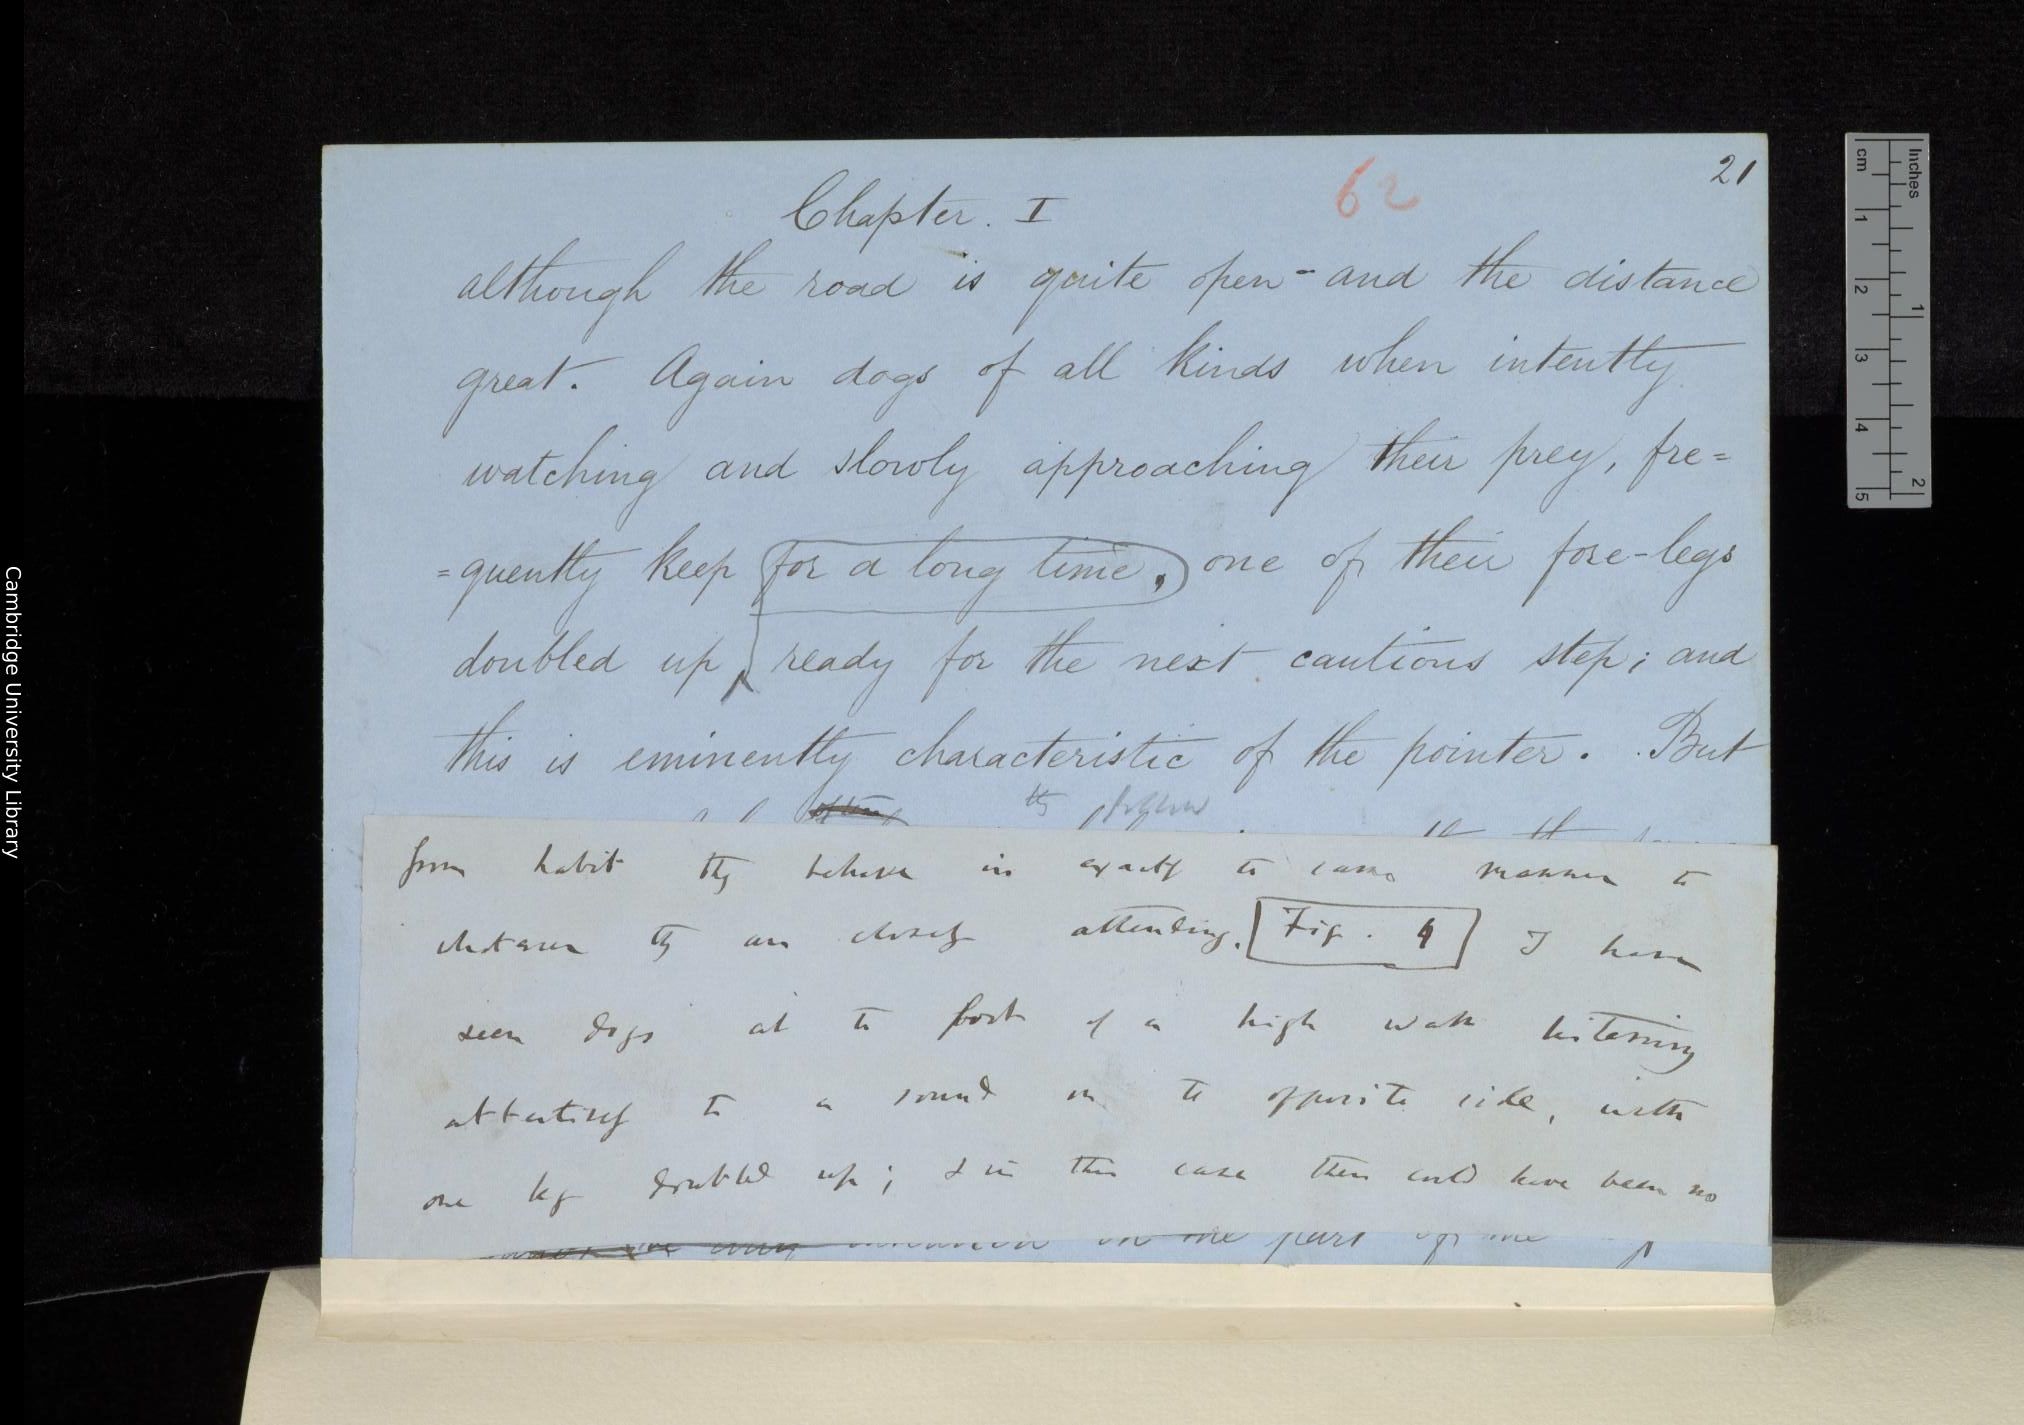 21
62
Chapter. I
although the road is quite open - and the distance
great. Again dogs of all kinds when intently
watching and slowly approaching their prey, fre=
=quently keep for a long time, one of their fore-legs
doubled up, ready for the next cautious step; and
this is eminently characteristic of the pointer. But
from habit thy behave in exactly te same manner
whenever thy are closely attending. Fig. 4 I have
seen dogs at te foot of a high wall listening
attentively to a sound on te opposite side, with
one leg doubled up; & in this case there could have been no
on the part of the
Inches
1
2
cm
1
2
3
4
5
Cambridge University Library